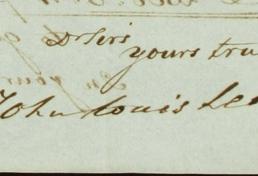 Dr Sirs
yours tru
John Louis Le